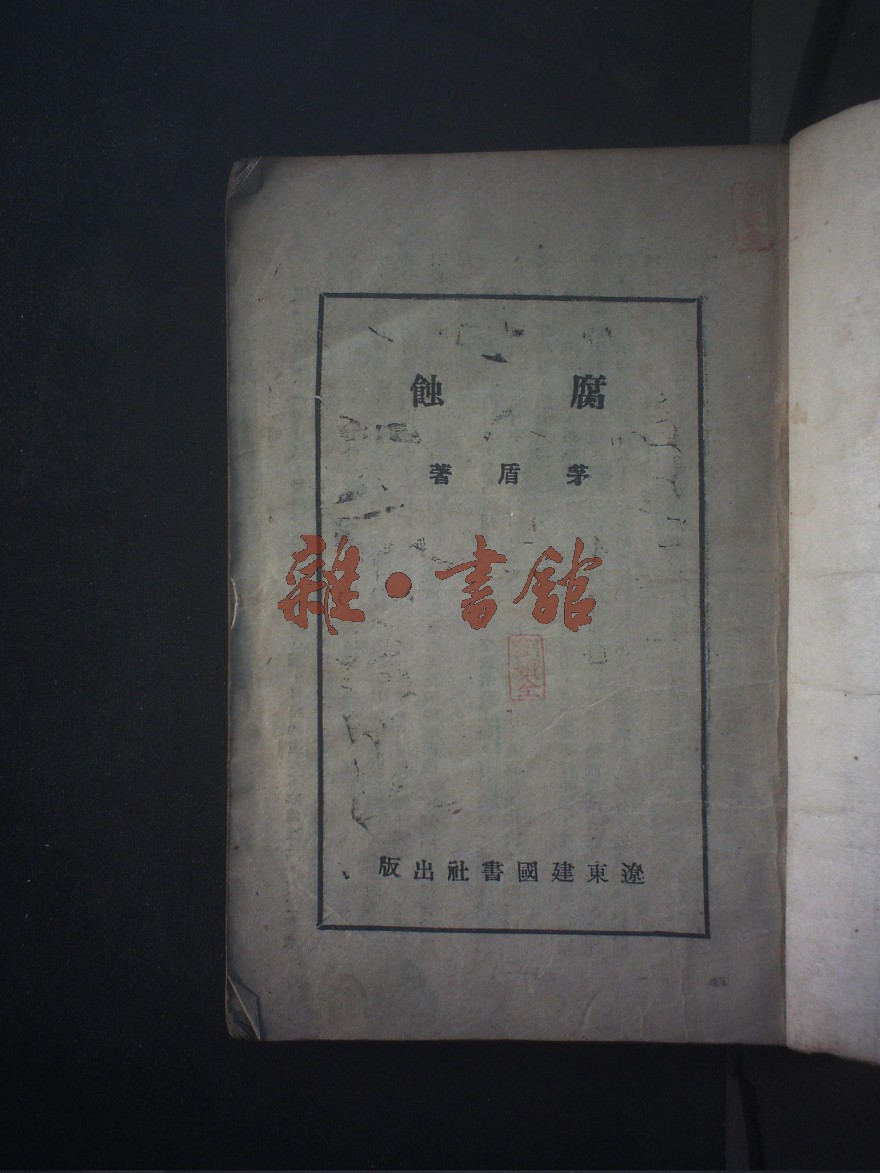 腐蝕
茅盾著
雜·書館
遼東建國書社出版